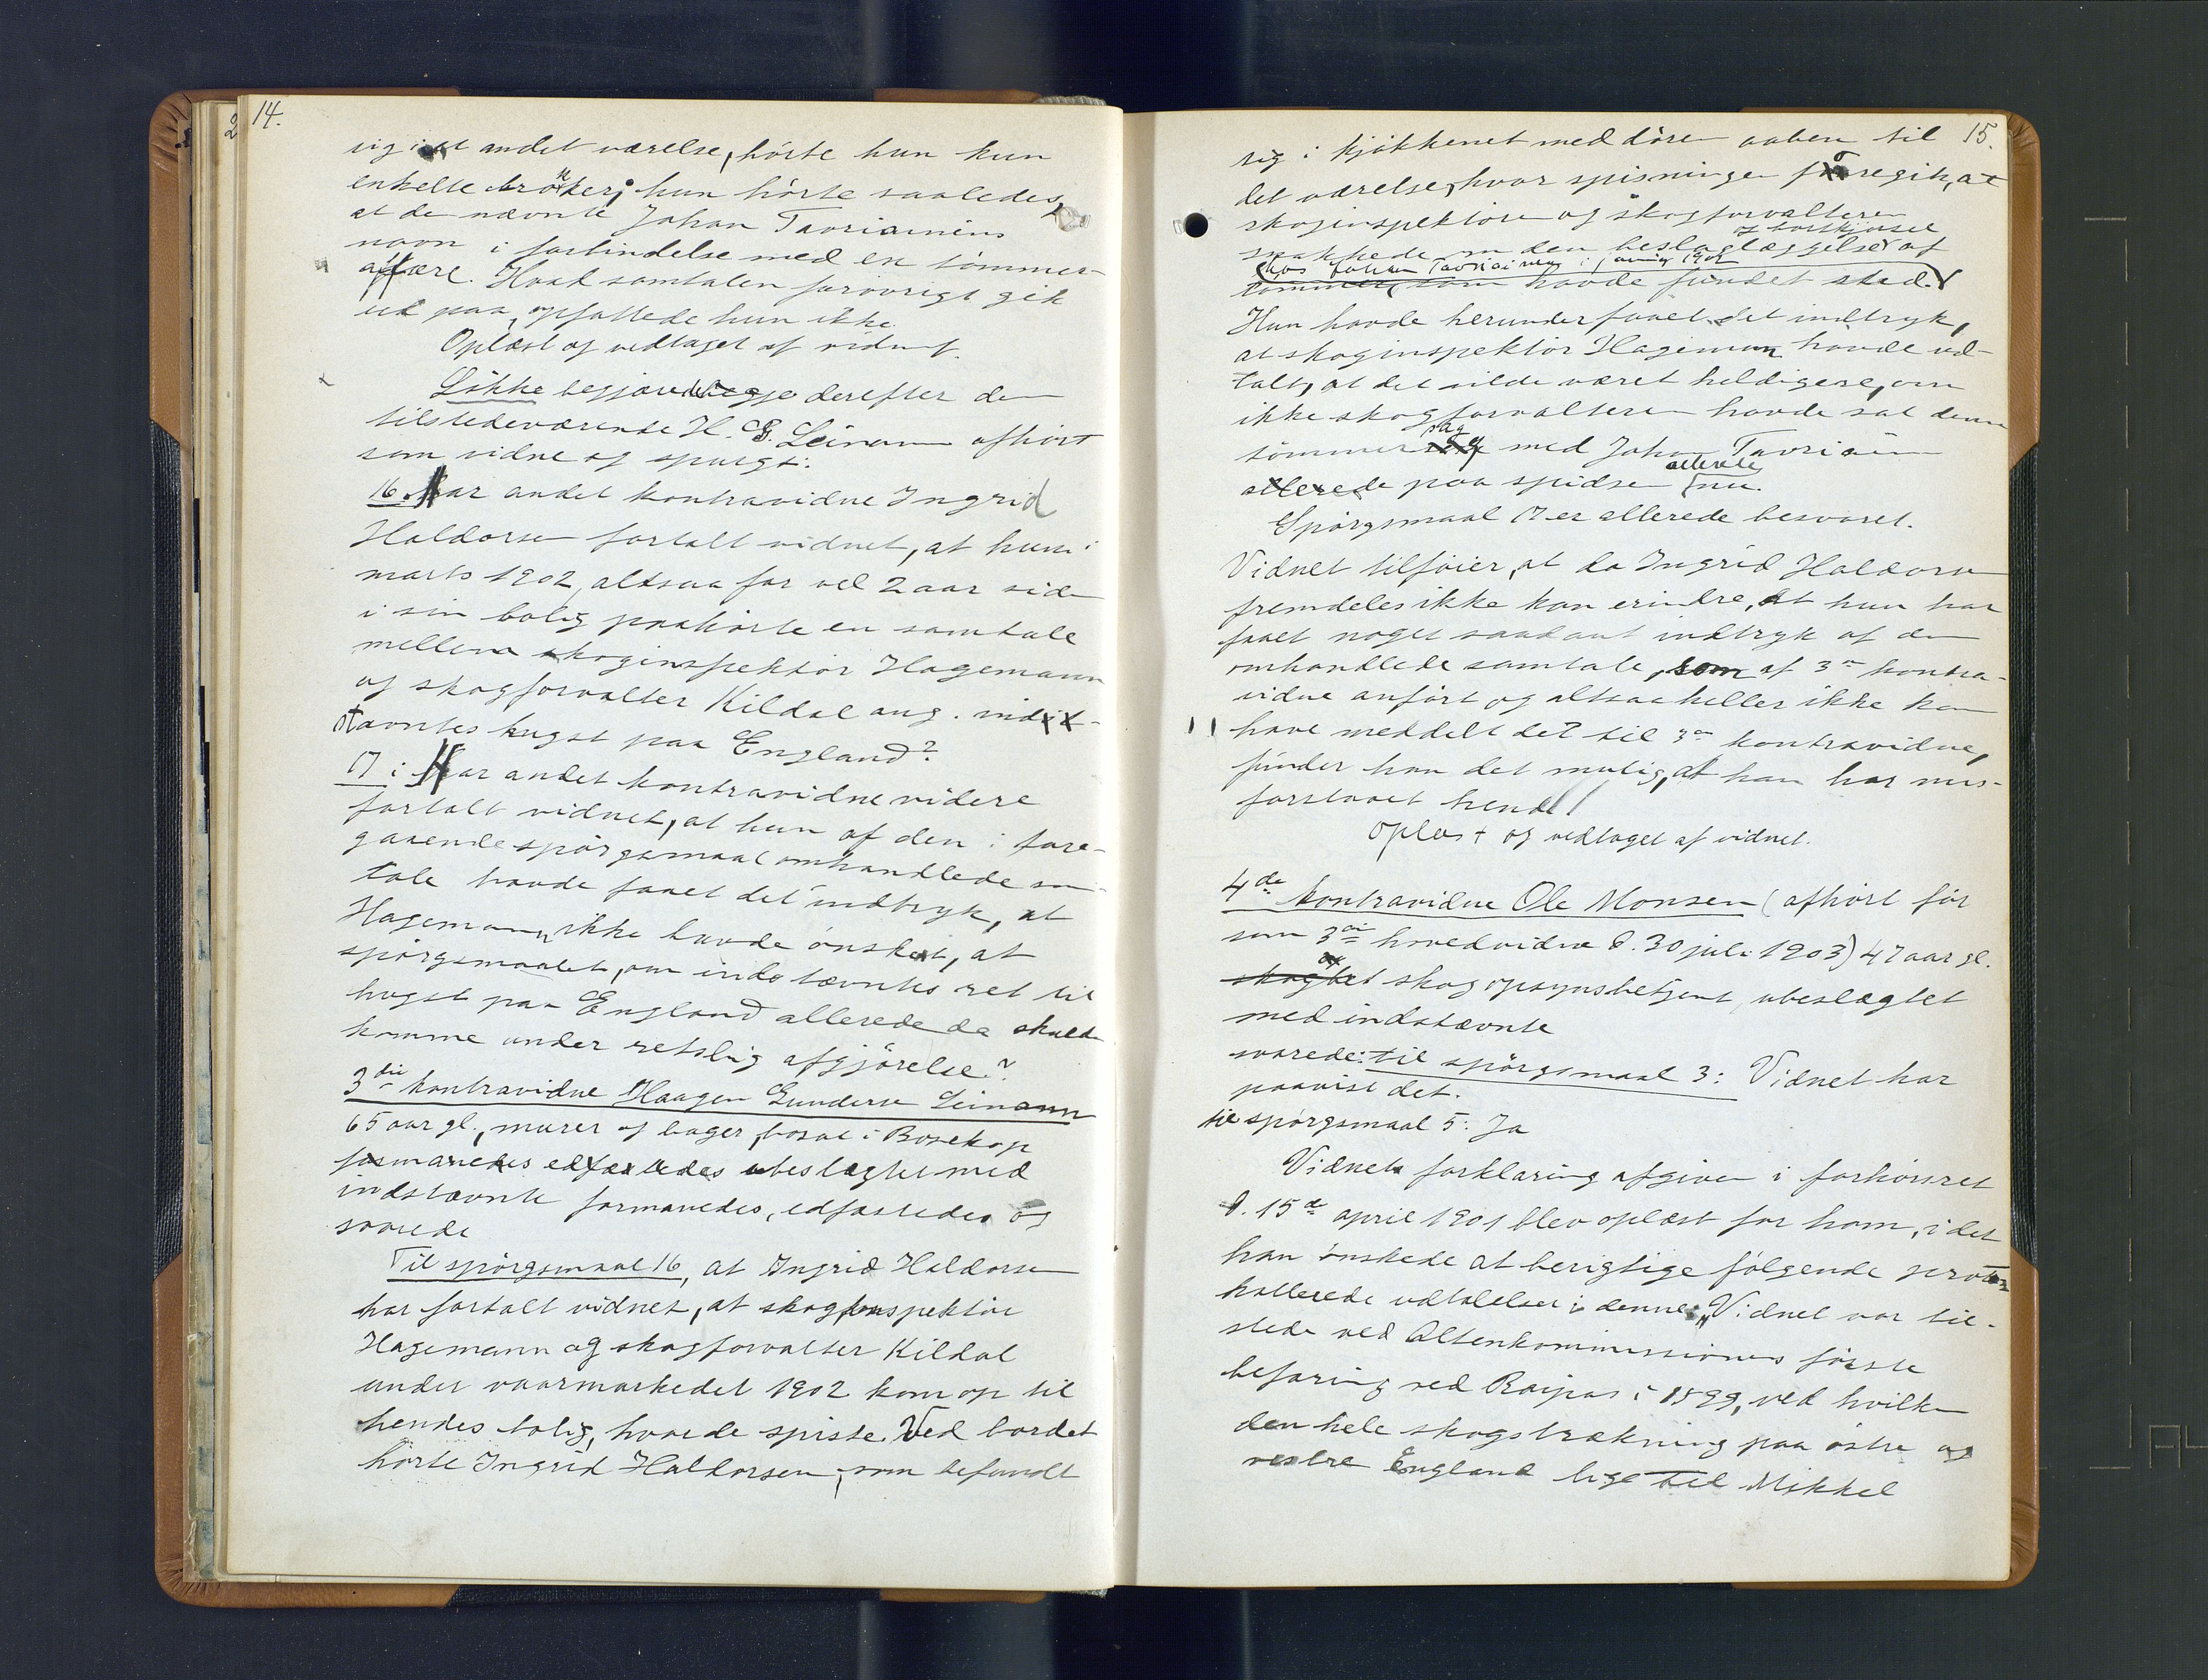 14.
sig i et andet værelse, hörte hun kun
enkelte brökker; hun hörte saaledes,
at de nævnte Johan Tavriainens
navn i forbindelse med en tömmer-
affære. Hvad samtalen forövrigt gik
ud paa, opfattede hun ikke.
Oplæst og vedtaget af vidnet.
Lökke begjærede derefter den
tilstedeværende H. G. Leinann afhört
som vidne og spurgt:
16. Har andet kontravidne Ingrid
Haldorsen fortalt vidnet, at hun i
marts 1902, altsaa for vel 2 aar siden
i sin bolig paahörte en samtale
mellem skoginspektör Hagemann
og skogforvalter Kildal ang. ind-
stævntes hugst paa England?
17: Har andet kontravidne videre
fortalt vidnet, at hun af den i fore-
gaaende spörgsmaal omhandlede sam-
tale havde faaet det indtryk, at
Hagemann ikke havde önsket, at
spörgsmaalet, om indstævntes ret til
hugst paa England allerede da skulde
komme under retslig afgjörelse?
3die kontravidne Haagen Gundersen Leinann
65 aar gl., murer og bager, bosat i Bosekop
formanedes edfæstedes ubeslægtet med
indstævnte formanedes, edfæstedes og
svarede
Til spörgsmaal 16, at Ingrid Haldorsen
har fortalt vidnet, at skoginspektör
Hagemann og skogforvalter Kildal
under vaarmarkedet 1902 kom op til
hendes bolig, hvor de spiste. Ved bordet
hörte Ingrid Haldorsen, som befandt
15.
sig i kjökkenet med dören aaben til
det værelse, hvor spisningen foregik, at
skoginspektören og skogforvalteren
og bortkjörsel
snakkede om den beslaglæggelse af
hos Johan Tavriainen i 1902
tömmer, som havde fundet sted.
Hun havde herunder faaet det indtryk,
at skoginspektör Hagemann havde ud-
talt, at det vilde været heldigere, om
ikke skogforvalteren havde sat denne
sag
tömmer med Johan Tavriainen
allerede
allerede paa spidsen nu.
Spörgsmaal 17 er allerede besvaret.
Vidnet tilföier, at da Ingrid Haldorsen
fremdeles ikke kan erindre, at hun har
faaet noget saadant indtryk af den
omhandlede samtale, som af 3die kontra-
vidne anfört og altsaa heller ikke kan
have meddelt det til 3die kontravidne,
finder han det mulig, at han har mis-
forstaaet hende
Oplæst og vedtaget af vidnet.
4de kontravidne Ole Monsen (afhört för
som 3die hovedvidne d. 30 juli 1903) 47 aar gl.
skogopsynsbetjent, ubeslægtet
med indstævnte
svarede: til spörgsmaal 3: Vidnet har
paavist det.
til spörgsmaal 5: Ja
Vidnets forklaring afgiven i forhöret
d. 15de april 1901 blev oplæst for ham, idet
han önskede at berigtige fölgende proto-
kollerede udtalelser i denne: „Vidnet var til-
stede ved Altenkommissionens förste
befaring ved Raipas i 1899, ved hvilken
den hele skogstrækning paa östre og
vestre England lige til Mikkel